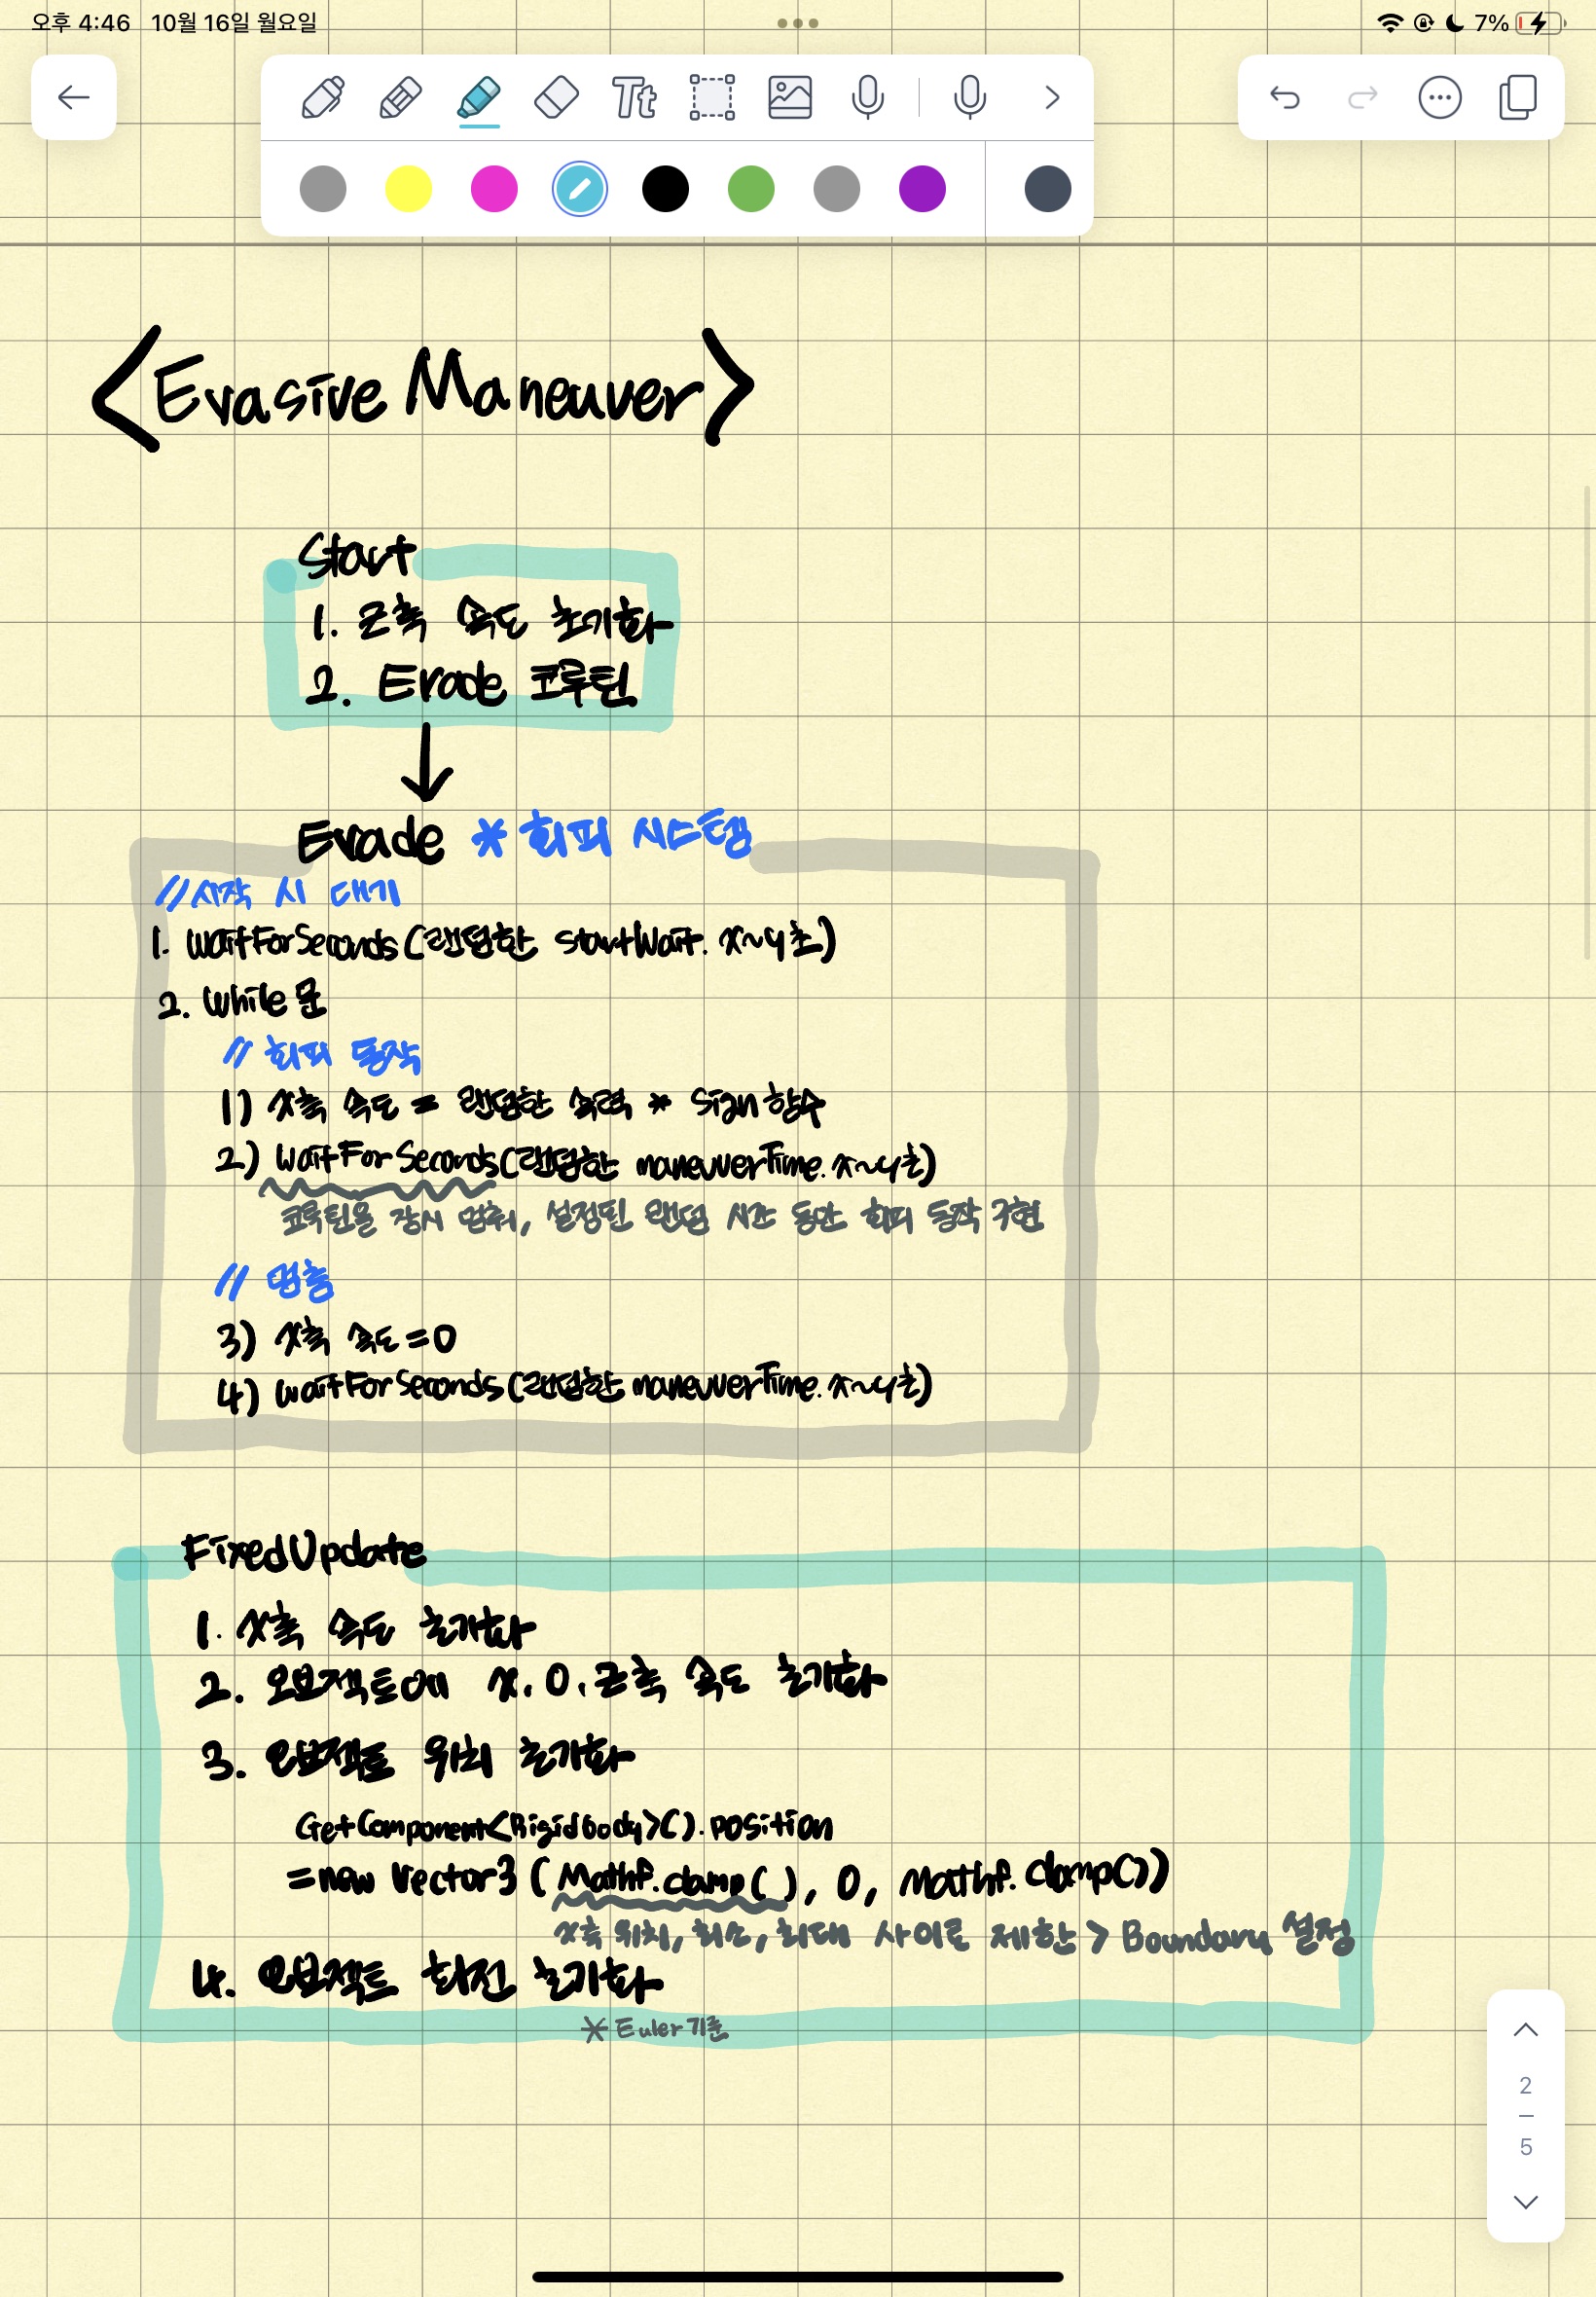 오후 4:46 10월 16일 월요일
7%
Tt
<Evasive Maneuver>
Start
1. Z축 속도 초기화
2. Evade 코루틴
Evade * 회피 시스템
//시작 시 대기
1. WaitForSeconds(랜덤한 startWait. x~y초)
2. While문
// 회피 동작
1) x축 속도 = 랜덤한 속력 * Sign함수
2) WaitForSeconds(랜덤한 maneuverTime. x~y초)
코루틴을 잠시 멈춰, 설정된 랜덤 시간 동안 회피 동작 구현
// 멈춤
3) x축 속도 = 0
4) WaitForSeconds(랜덤한 maneuverTime. x~y초)
FixedUpdate
1. x축 속도 초기화
2. 오브젝트에 x, 0, z축 속도 초기화
3. 오브젝트 위치 초기화
GetComponent<Rigidbody>().position
= new Vector3 (Mathf.clamp( ), 0, Mathf.clamp())
x축 위치, 최소, 최대 사이로 제한 > Boundary 설정
4. 오브젝트 회전 초기화
* Euler기준
2
5